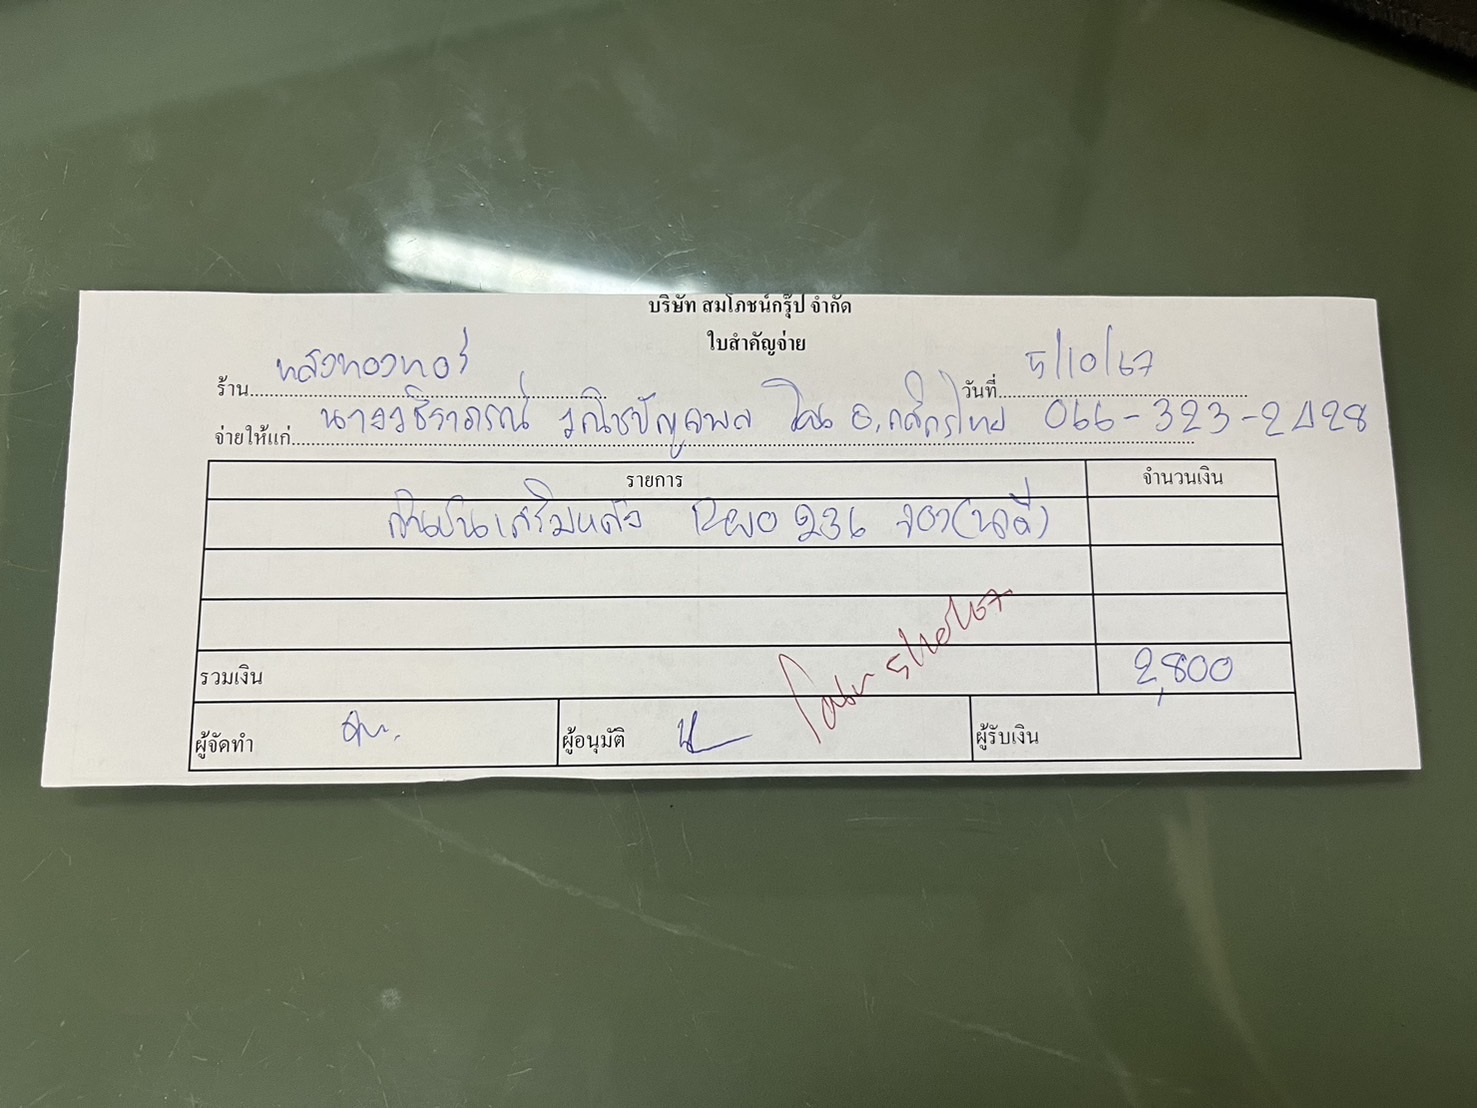 บริษัท สมโภชน์กรุ๊ป จำกัด
ใบสำคัญจ่าย
ร้าน หลังทองทอง วันที่ 5/10/67
จ่ายให้แก่ นางวชิราภรณ์ วณิชปัญจพล โอน ธ.กสิกรไทย 066-323-2428
รายการ จำนวนเงิน
กันชนเสริมหลัง Revo 236 (นคดี)
รวมเงิน 2,800
โอน 5/10/67
ผู้จัดทำ ผู้อนุมัติ ผู้รับเงิน